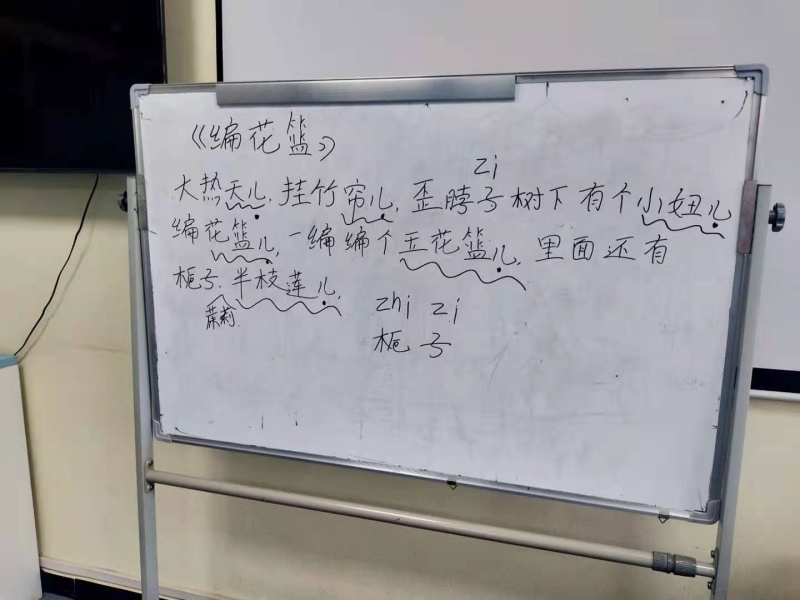 《编花篮》
zi
大热天儿,挂竹帘儿,歪脖子树下有个小妞儿
编花篮儿,一编编个五花篮儿,里面还有
栀子、半枝莲儿,
茉莉
zhi zi
栀子